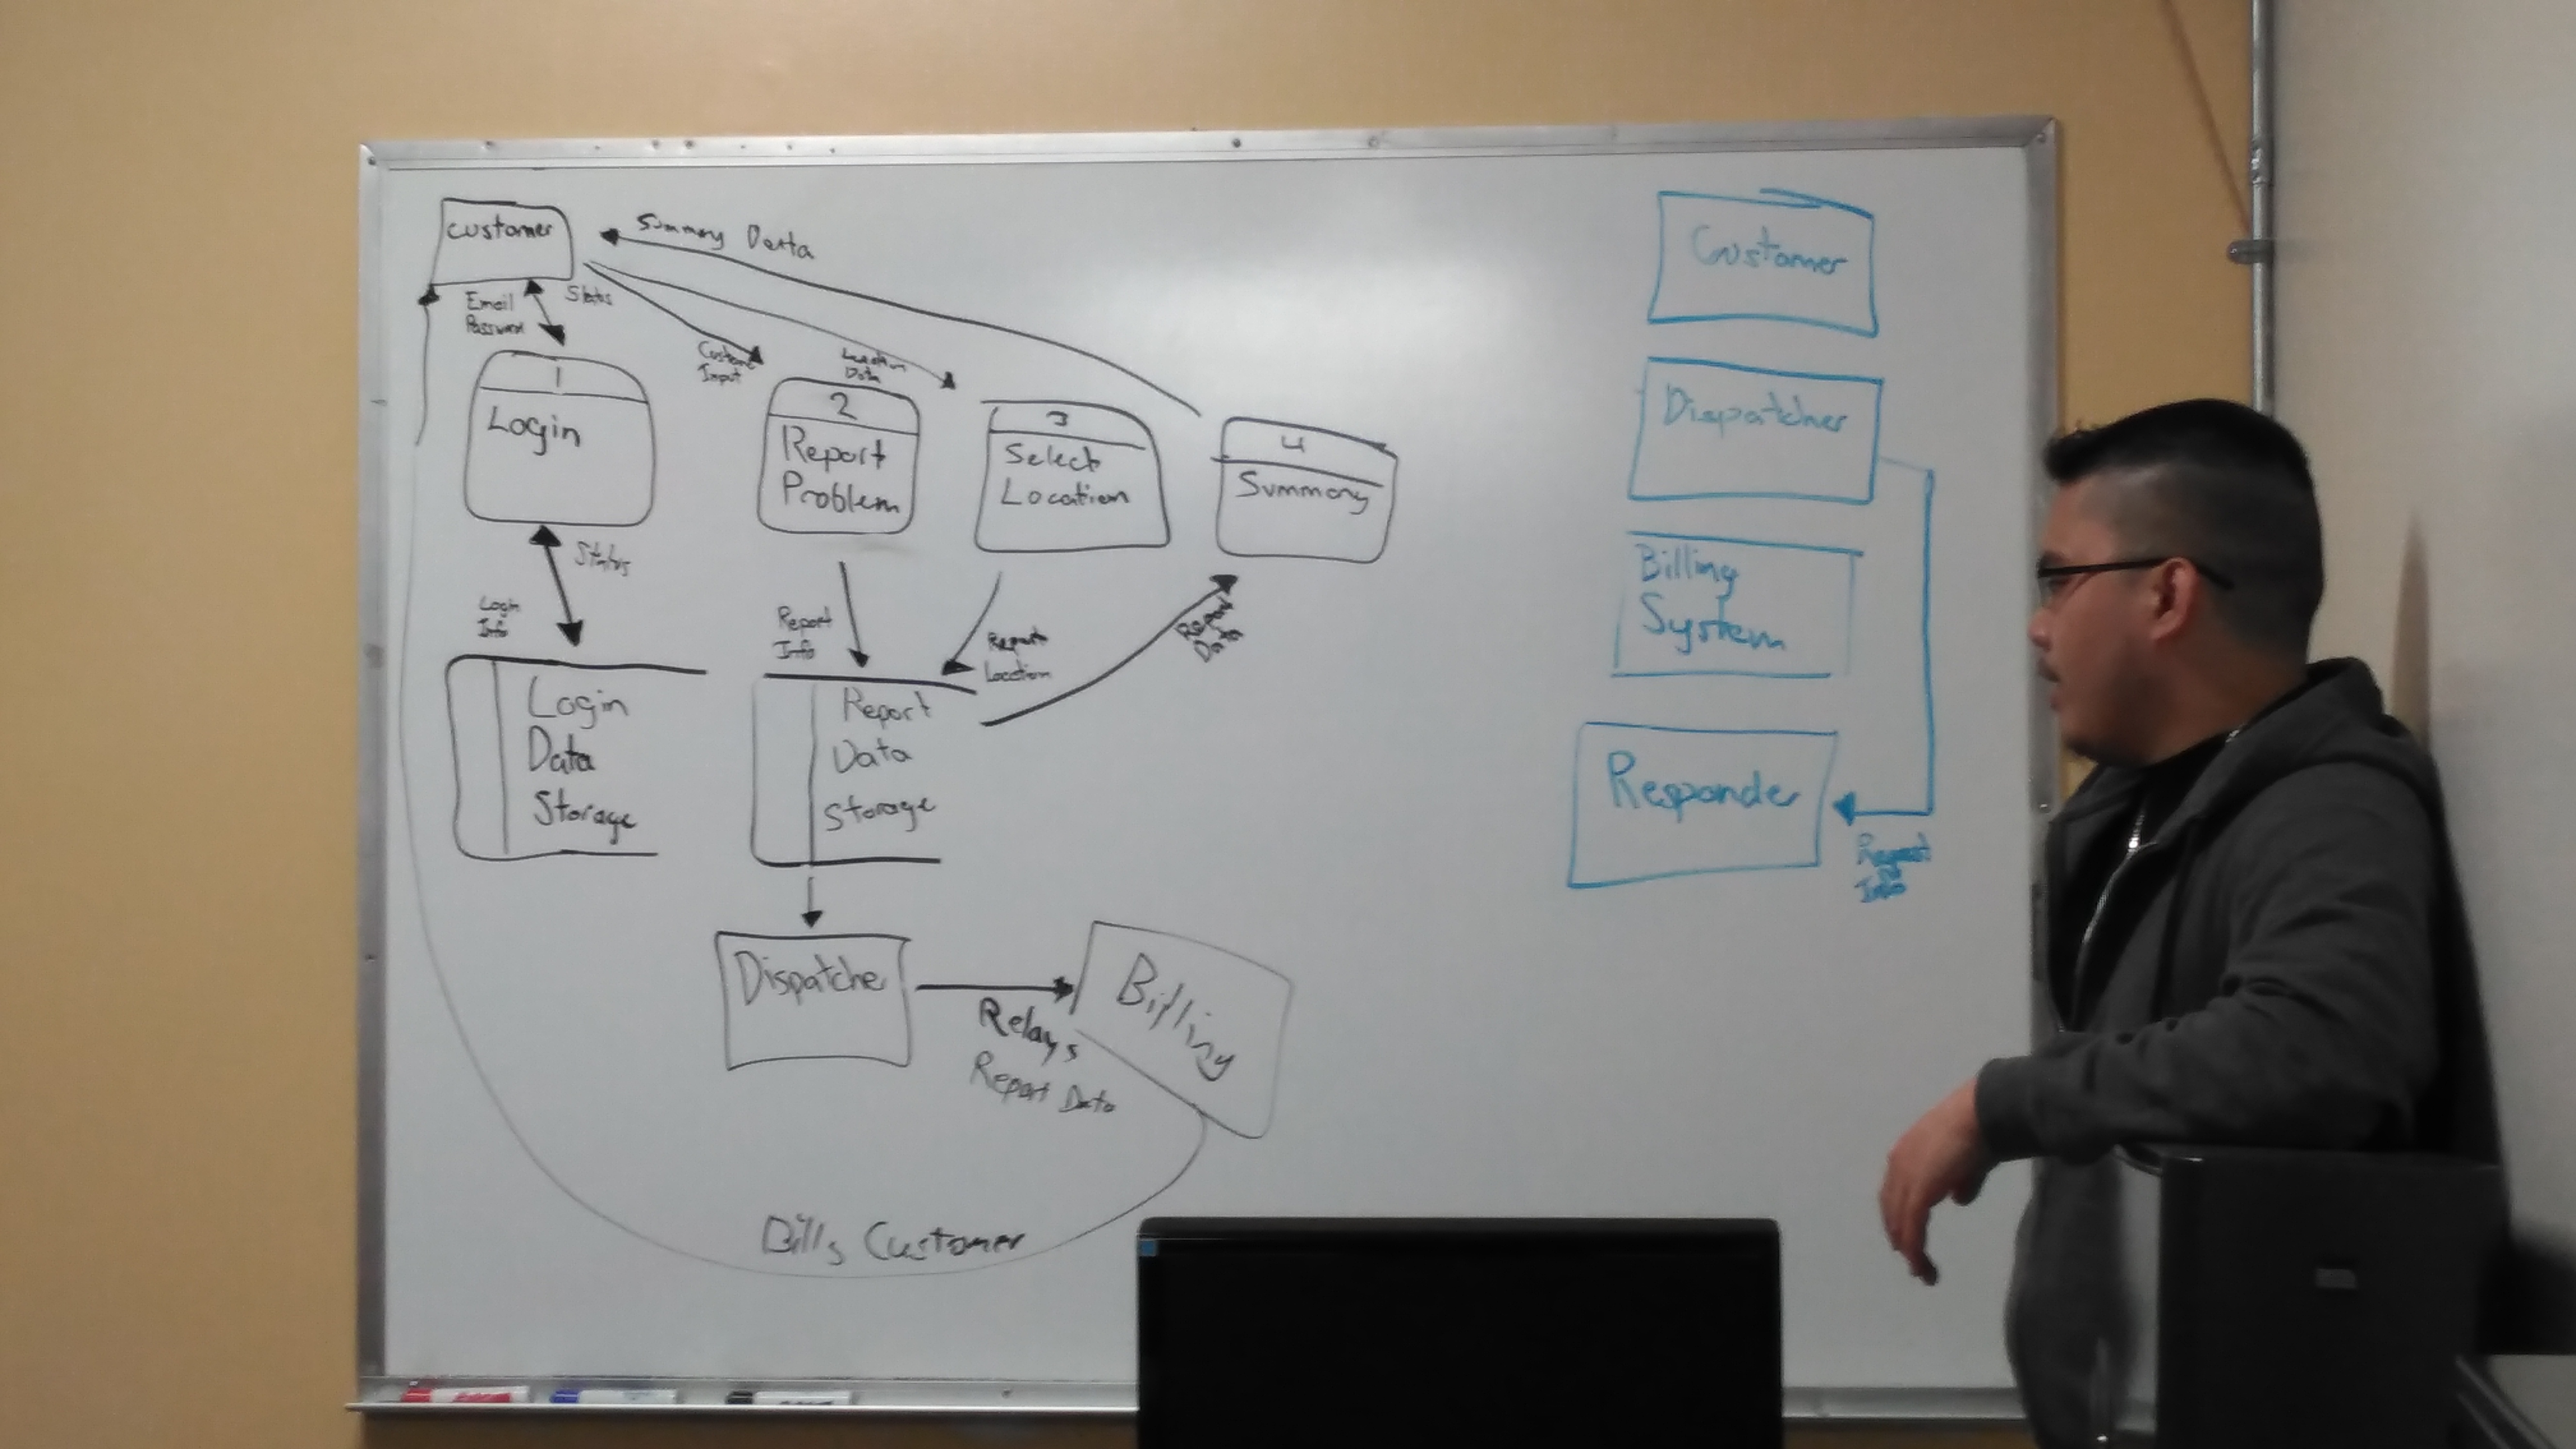 customer
Summary Data
Email
Password
Status
Customer
Input
Location
Data
1
Login
2
Report
Problem
3
Select
Location
4
Summary
Status
Login
Info
Report
Info
Report
Location
Report
Data
Login
Data
Storage
Report
Data
Storage
Dispatcher
Relays
Report Data
Billing
Bills Customer
Customer
Dispatcher
Billing
System
Responder
Info